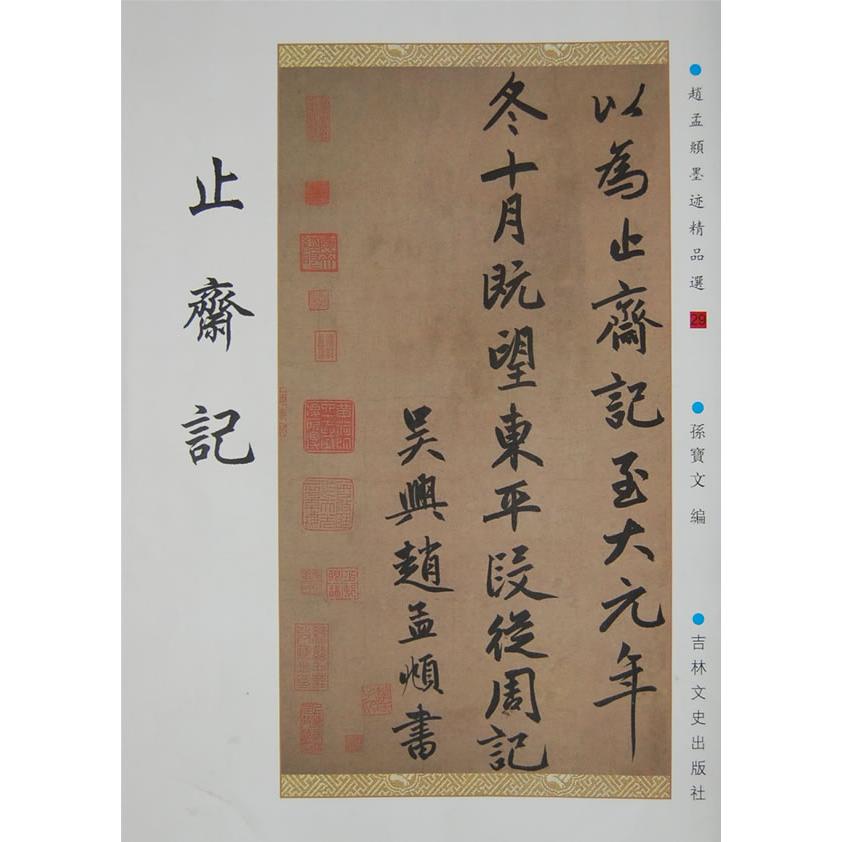 趙孟頫墨迹精品選 29
孫寶文 編
吉林文史出版社
以為止齋記至大元年
冬十月既望東平段從周記
吳興趙孟頫書
止齋記